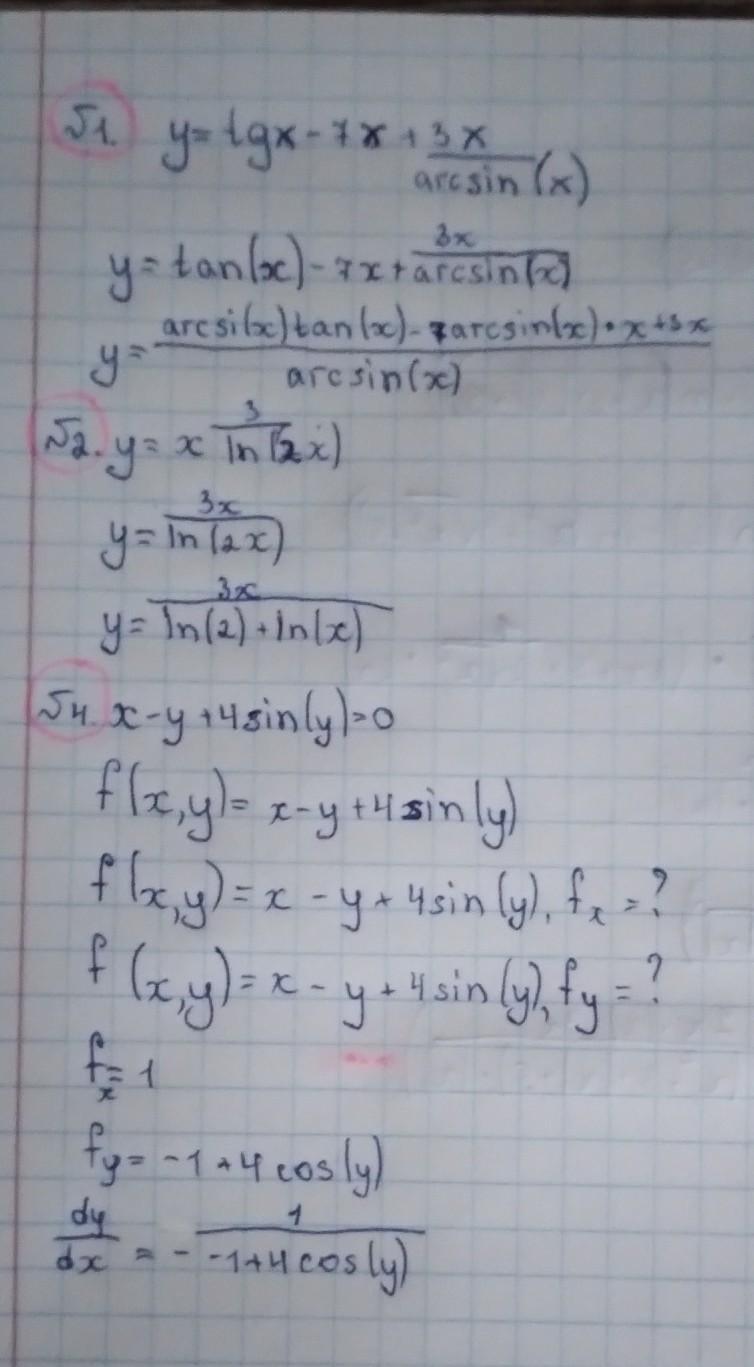 №1. y = tgx - 7x + 3x/arcsin(x)
y = tan(x) - 7x + 3x/arcsin(x)
y = (arcsi(x)tan(x) - 7arcsin(x)·x+3x)/arcsin(x)
№2. y = x 3/ln(2x)
y = 3x/ln(2x)
y = 3x/(ln(2)+ln(x))
№4. x-y+4sin(y)=0
f(x,y) = x-y+4sin(y)
f(x,y) = x-y+4sin(y), fₓ = ?
f(x,y) = x-y+4sin(y), fy = ?
fₓ = 1
fy = -1+4cos(y)
dy/dx = - 1/(-1+4cos(y))